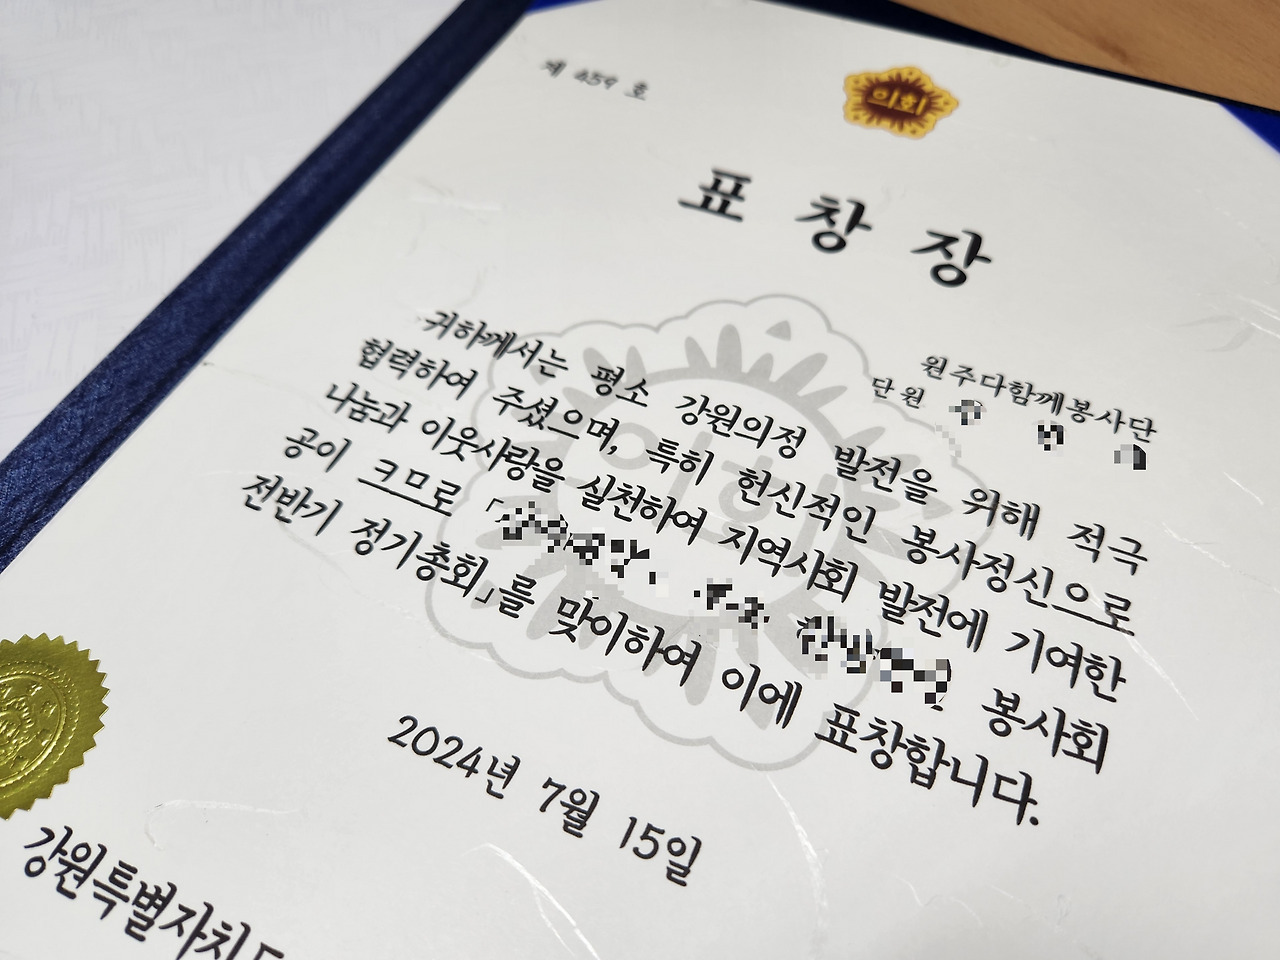 제 459 호
의회
표 창 장
원주다함께봉사단
단원
귀하께서는 평소 강원의정 발전을 위해 적극
협력하여 주셨으며, 특히 헌신적인 봉사정신으로
나눔과 이웃사랑을 실천하여 지역사회 발전에 기여한
공이 크므로 「 봉사회
전반기 정기총회」를 맞이하여 이에 표창합니다.
2024년 7월 15일
강원특별자치도